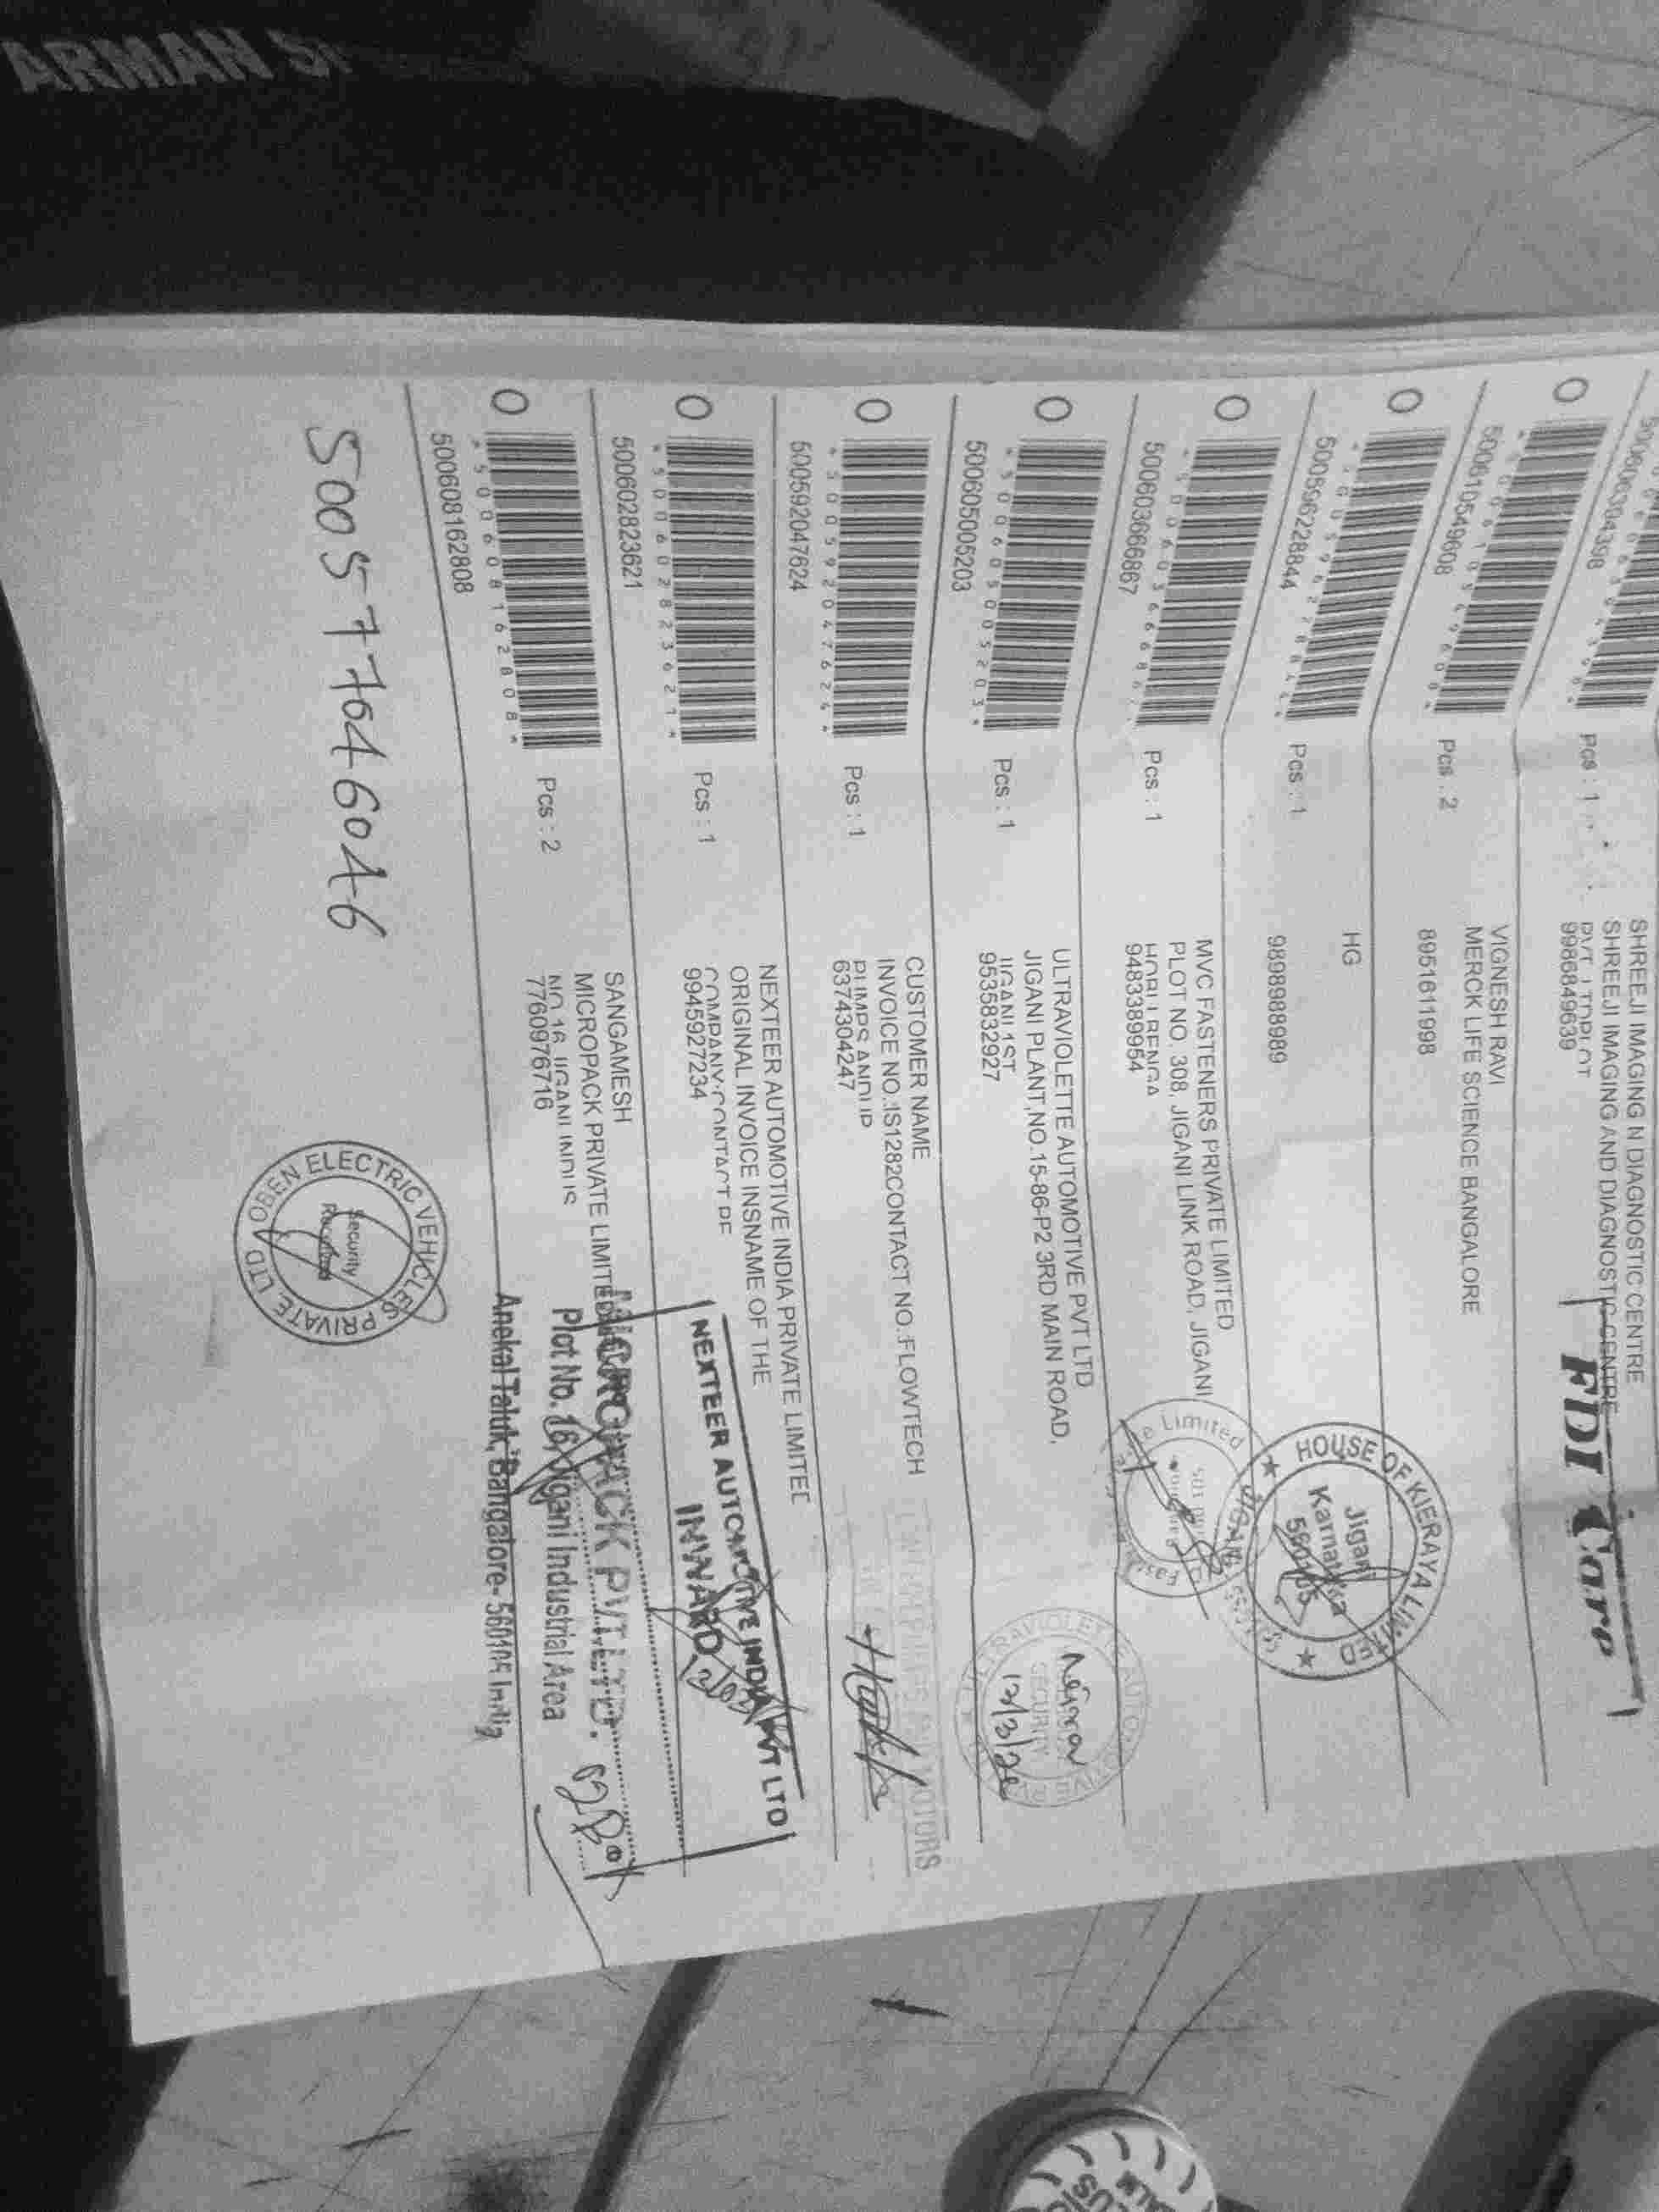 ARMAN
500606304398
Pcs : 1
SHREEJI IMAGING N DIAGNOSTIC CENTRE
SHREEJI IMAGING AND DIAGNOSTIC CENTRE
PVT LTDPLOT
9986849639
FDI Care
500610549608
Pcs : 2
VIGNESH RAVI
MERCK LIFE SCIENCE BANGALORE
8951611998
500596228844
Pcs : 1
HG
9898989989
HOUSE OF KIERAYA LIMITED
Jigani
Karnataka
560105
500603666867
Pcs : 1
MVC FASTENERS PRIVATE LIMITED
PLOT NO. 308, JIGANI LINK ROAD, JIGANI
HOBLI RENGA
9483389954
Limited
*500605005203*
500605005203
Pcs : 1
ULTRAVIOLETTE AUTOMOTIVE PVT LTD
JIGANI PLANT,NO.15-86-P2 3RD MAIN ROAD,
JIGANI 1ST
9535832927
SECURITY
12/3/26
*500592047624*
500592047624
Pcs : 1
CUSTOMER NAME
INVOICE NO.:IS1282CONTACT NO.:FLOWTECH
PUMPS ANDUP
6374304247
MOTORS
*500602823621*
500602823621
Pcs : 1
NEXTEER AUTOMOTIVE INDIA PRIVATE LIMITED
ORIGINAL INVOICE INSNAME OF THE
COMPANY:CONTACT PE
9945927234
NEXTEER AUTOMOTIVE INDIA PVT LTD
INWARD
*500608162808*
500608162808
Pcs : 2
SANGAMESH
MICROPACK PRIVATE LIMITED
NO 16 JIGANI INDUS
7760976716
MICROPACK PVT. LTD.
Plot No. 16, Jigani Industrial Area
Anekal Taluk, Bangalore- 560105 India
500577646046
OBEN ELECTRIC VEHICLES PRIVATE LTD
Security
Received